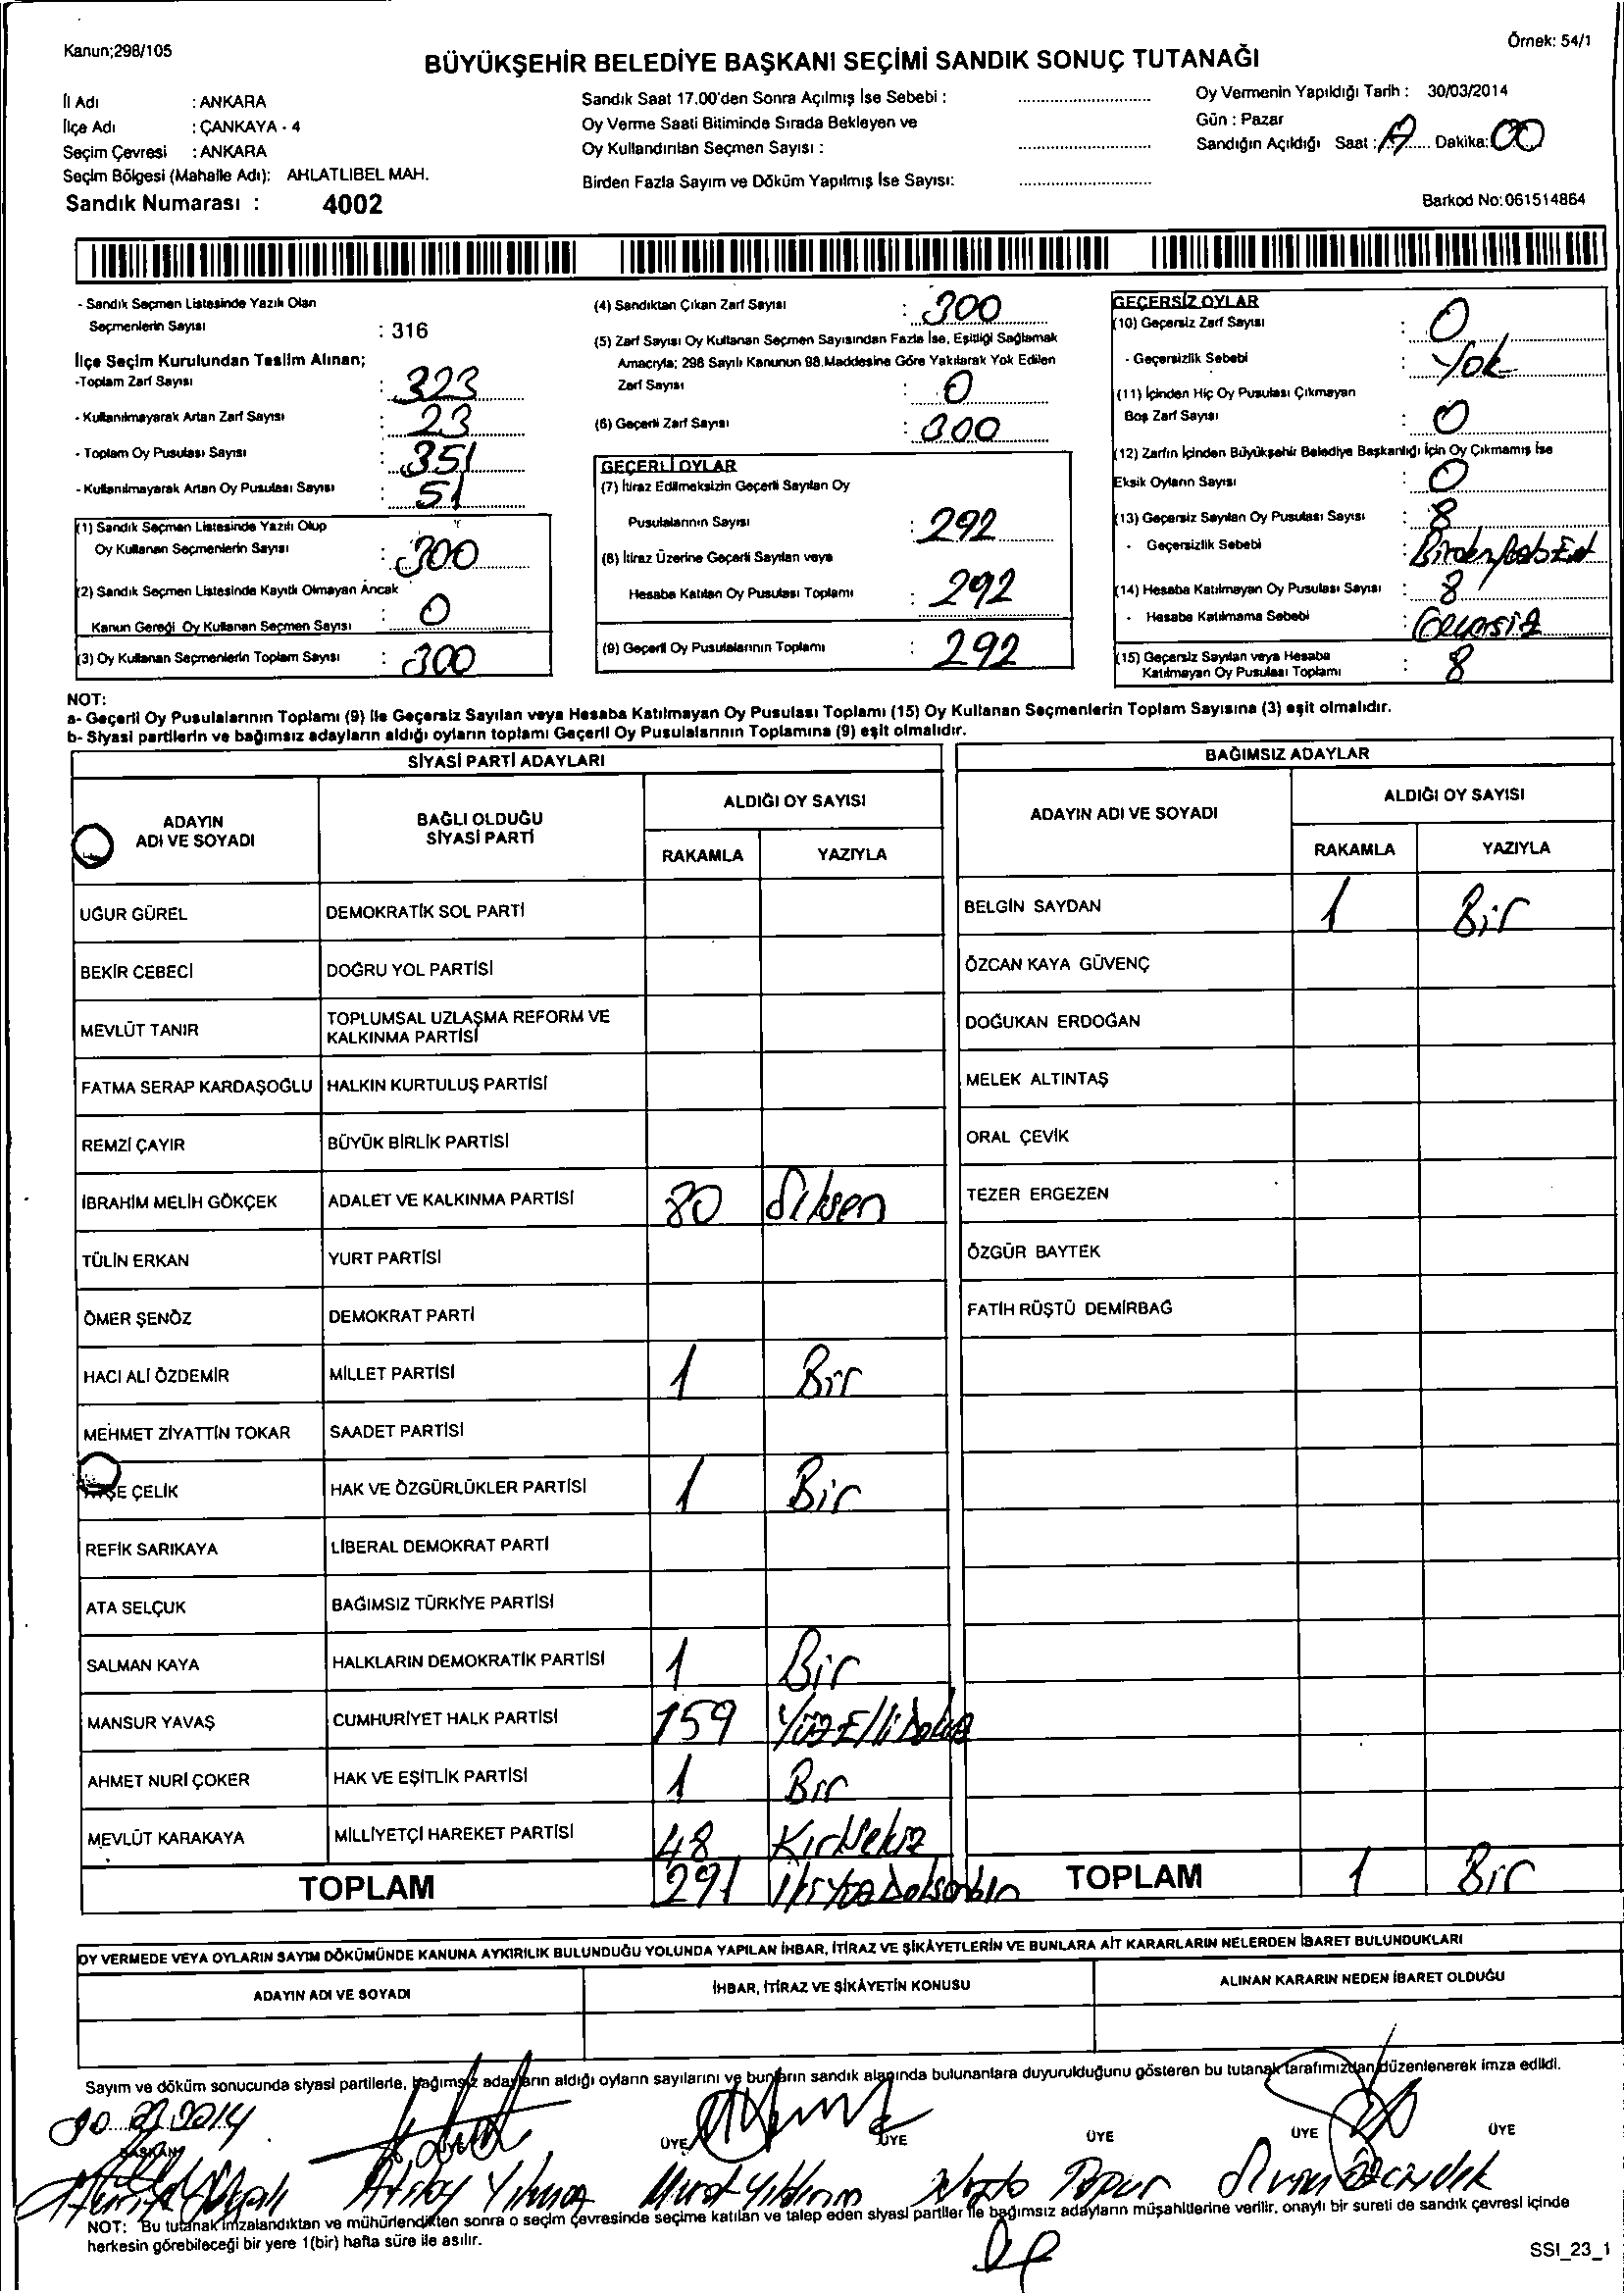 Kanun;298/105
Örnek: 54/1
BÜYÜKŞEHİR BELEDİYE BAŞKANI SEÇİMİ SANDIK SONUÇ TUTANAĞI
İl Adı : ANKARA
İlçe Adı : ÇANKAYA - 4
Seçim Çevresi : ANKARA
Seçim Bölgesi (Mahalle Adı): AHLATLIBEL MAH.
Sandık Numarası : 4002
Sandık Saat 17.00'den Sonra Açılmış İse Sebebi : ........................
Oy Verme Saati Bitiminde Sırada Bekleyen ve
Oy Kullandırılan Seçmen Sayısı : ........................
Birden Fazla Sayım ve Döküm Yapılmış İse Sayısı: ........................
Oy Vermenin Yapıldığı Tarih : 30/03/2014
Gün : Pazar
Sandığın Açıldığı Saat : Dakika: 00
Barkod No:061514864
- Sandık Seçmen Listesinde Yazılı Olan
Seçmenlerin Sayısı : 316
İlçe Seçim Kurulundan Teslim Alınan;
-Toplam Zarf Sayısı : 323
- Kullanılmayarak Artan Zarf Sayısı : 23
- Toplam Oy Pusulası Sayısı : 351
- Kullanılmayarak Artan Oy Pusulası Sayısı : 51
(1) Sandık Seçmen Listesinde Yazılı Olup
Oy Kullanan Seçmenlerin Sayısı : 300
(2) Sandık Seçmen Listesinde Kayıtlı Olmayan Ancak
Kanun Gereği Oy Kullanan Seçmen Sayısı : 0
(3) Oy Kullanan Seçmenlerin Toplam Sayısı : 300
(4) Sandıktan Çıkan Zarf Sayısı : 300
(5) Zarf Sayısı Oy Kullanan Seçmen Sayısından Fazla İse, Eşitliği Sağlamak
Amacıyla; 298 Sayılı Kanunun 98.Maddesine Göre Yakılarak Yok Edilen
Zarf Sayısı : 0
(6) Geçerli Zarf Sayısı : 300
GEÇERLİ OYLAR
(7) İtiraz Edilmeksizin Geçerli Sayılan Oy
Pusulalarının Sayısı : 292
(8) İtiraz Üzerine Geçerli Sayılan veya
Hesaba Katılan Oy Pusulası Toplamı : 292
(9) Geçerli Oy Pusulalarının Toplamı : 292
GEÇERSİZ OYLAR
(10) Geçersiz Zarf Sayısı : 0
- Geçersizlik Sebebi : Yok
(11) İçinden Hiç Oy Pusulası Çıkmayan
Boş Zarf Sayısı : 0
(12) Zarfın İçinden Büyükşehir Belediye Başkanlığı İçin Oy Çıkmamış İse
Eksik Oyların Sayısı : 0
(13) Geçersiz Sayılan Oy Pusulası Sayısı : 8
- Geçersizlik Sebebi :
(14) Hesaba Katılmayan Oy Pusulası Sayısı : 8
- Hesaba Katılmama Sebebi : Geçersiz
(15) Geçersiz Sayılan veya Hesaba
Katılmayan Oy Pusulası Toplamı : 8
NOT:
a- Geçerli Oy Pusulalarının Toplamı (9) ile Geçersiz Sayılan veya Hesaba Katılmayan Oy Pusulası Toplamı (15) Oy Kullanan Seçmenlerin Toplam Sayısına (3) eşit olmalıdır.
b- Siyasi partilerin ve bağımsız adayların aldığı oyların toplamı Geçerli Oy Pusulalarının Toplamına (9) eşit olmalıdır.
SİYASİ PARTİ ADAYLARI
ADAYIN ADI VE SOYADI
BAĞLI OLDUĞU SİYASİ PARTİ
ALDIĞI OY SAYISI
RAKAMLA YAZIYLA
UĞUR GÜREL DEMOKRATİK SOL PARTİ
BEKİR CEBECİ DOĞRU YOL PARTİSİ
MEVLÜT TANIR TOPLUMSAL UZLAŞMA REFORM VE
KALKINMA PARTİSİ
FATMA SERAP KARDAŞOĞLU HALKIN KURTULUŞ PARTİSİ
REMZİ ÇAYIR BÜYÜK BİRLİK PARTİSİ
İBRAHİM MELİH GÖKÇEK ADALET VE KALKINMA PARTİSİ 80 Seksen
TÜLİN ERKAN YURT PARTİSİ
ÖMER ŞENÖZ DEMOKRAT PARTİ
HACI ALİ ÖZDEMİR MİLLET PARTİSİ 1 Bir
MEHMET ZİYATTİN TOKAR SAADET PARTİSİ
ÇELİK HAK VE ÖZGÜRLÜKLER PARTİSİ 1 Bir
REFİK SARIKAYA LİBERAL DEMOKRAT PARTİ
ATA SELÇUK BAĞIMSIZ TÜRKİYE PARTİSİ
SALMAN KAYA HALKLARIN DEMOKRATİK PARTİSİ 1 Bir
MANSUR YAVAŞ CUMHURİYET HALK PARTİSİ 159 YüzElliDokuz
AHMET NURİ ÇOKER HAK VE EŞİTLİK PARTİSİ 1 Bir
MEVLÜT KARAKAYA MİLLİYETÇİ HAREKET PARTİSİ 48 KırkSekiz
TOPLAM 291 İkiyüzDoksanbir
BAĞIMSIZ ADAYLAR
ADAYIN ADI VE SOYADI
ALDIĞI OY SAYISI
RAKAMLA YAZIYLA
BELGİN SAYDAN 1 Bir
ÖZCAN KAYA GÜVENÇ
DOĞUKAN ERDOĞAN
MELEK ALTINTAŞ
ORAL ÇEVİK
TEZER ERGEZEN
ÖZGÜR BAYTEK
FATİH RÜŞTÜ DEMİRBAĞ
TOPLAM 1 Bir
OY VERMEDE VEYA OYLARIN SAYIM DÖKÜMÜNDE KANUNA AYKIRILIK BULUNDUĞU YOLUNDA YAPILAN İHBAR, İTİRAZ VE ŞİKÂYETLERİN VE BUNLARA AİT KARARLARIN NELERDEN İBARET BULUNDUKLARI
ADAYIN ADI VE SOYADI İHBAR, İTİRAZ VE ŞİKÂYETİN KONUSU ALINAN KARARIN NEDEN İBARET OLDUĞU
Sayım ve döküm sonucunda siyasi partilerle, bağımsız adayların aldığı oyların sayılarını ve bunların sandık alanında bulunanlara duyurulduğunu gösteren bu tutanak tarafımızdan düzenlenerek imza edildi.
BAŞKAN ÜYE ÜYE ÜYE ÜYE ÜYE ÜYE
Murat Yıldırım
NOT: Bu tutanak imzalandıktan ve mühürlendikten sonra o seçim çevresinde seçime katılan ve talep eden siyasi partiler ile bağımsız adayların müşahitlerine verilir, onaylı bir sureti de sandık çevresi içinde
herkesin görebileceği bir yere 1(bir) hafta süre ile asılır.
SSI_23_1